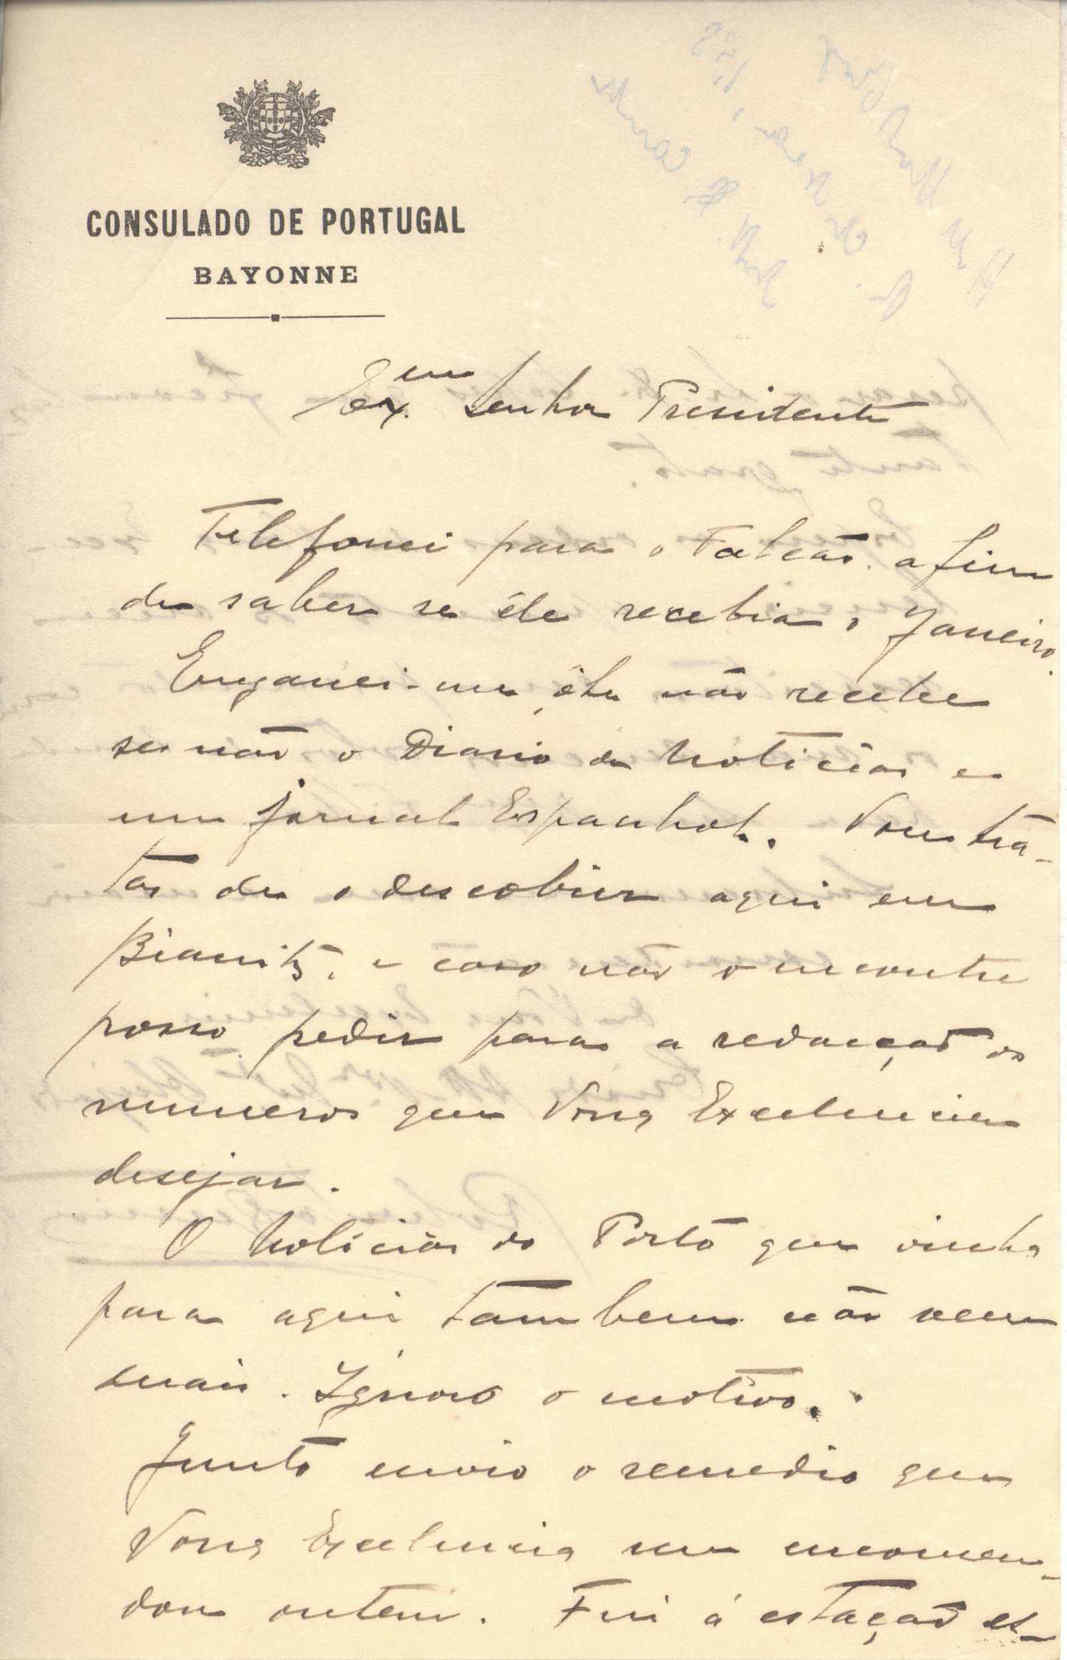 CONSULADO DE PORTUGAL
BAYONNE
Ex.mo Senhor Presidente
Telefonei para o Falcão. a fim
de saber se êle recebia o Janeiro.
Enganei-me, êle não recebe
se não o Diario de Noticias e
um jornal Espanhol. Vou tra-
tar de o descobrir aqui em
Biarritz, e caso não o encontre
posso pedir para a redacção os
numeros que Vossa Excelencia
desejar.
O Noticias do Porto que vinha
para aqui tambem não vem
mais. Ignoro o motivo.
Junto envio o remedio que
Vossa Excelencia me encomen-
dou ontem. Fui á estação es-